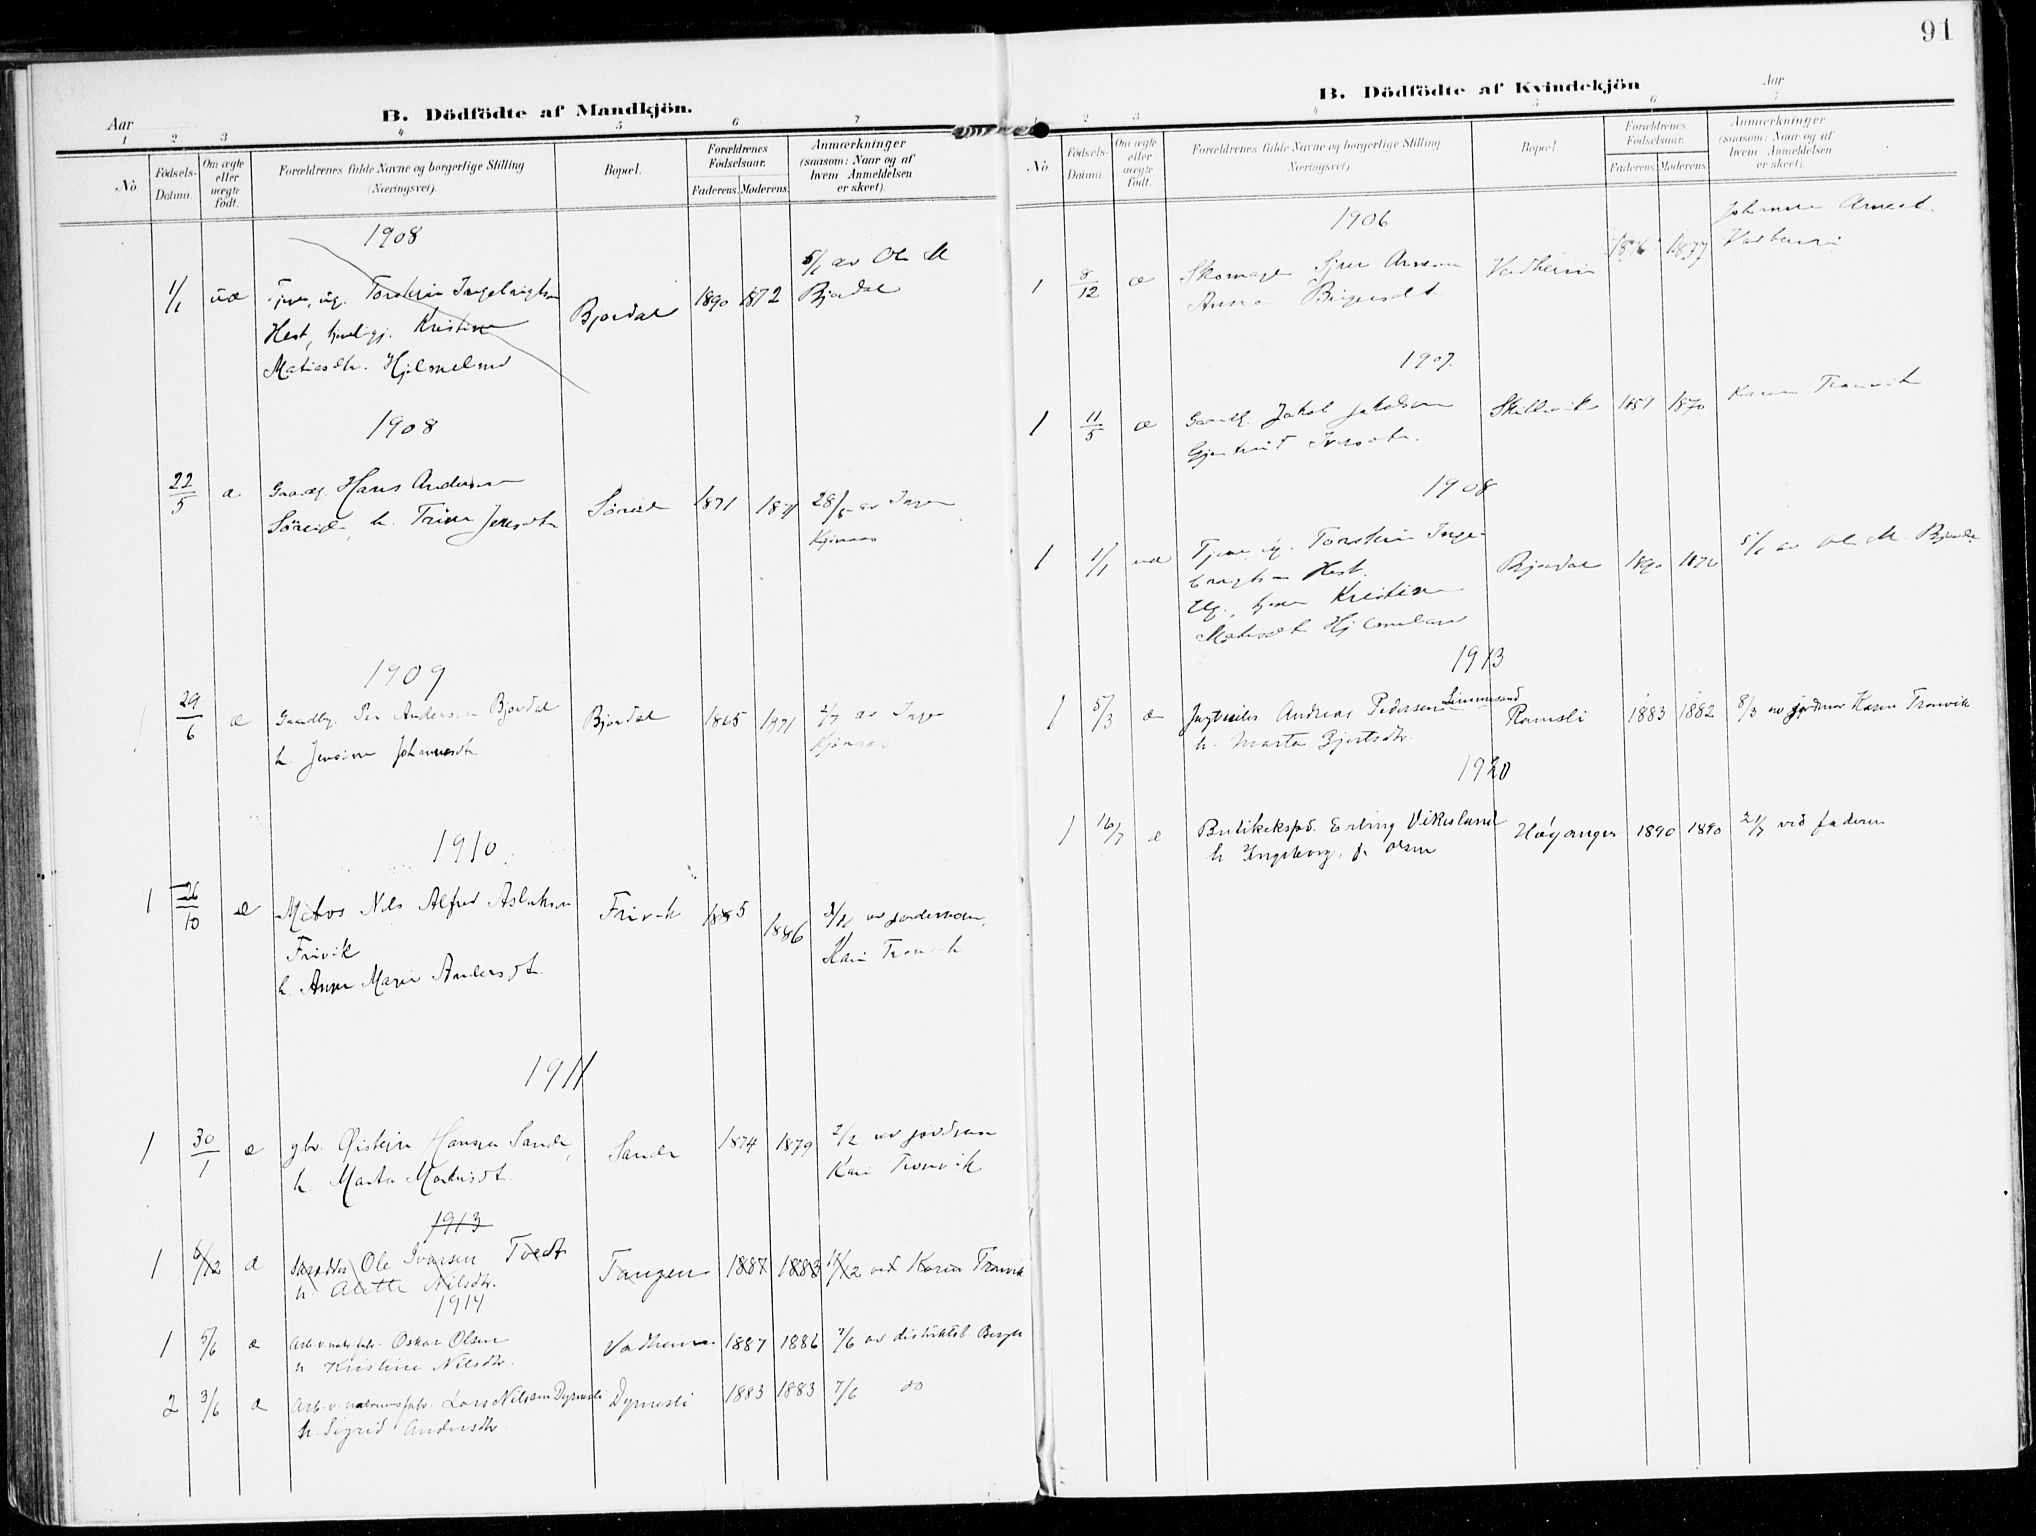 91
B. Dödfödte af Mandkjön.
Aar
1 2 3 4 5 6 7
No
Födsels-Datum.
Om ægte eller uægte født.
Forældrenes fulde Navne og borgerlige Stilling (Næringsvei).
Bopæl.
Forældrenes Födselsaar.
Faderens. Moderens.
Anmærkninger (saasom: Naar og af hvem Anmeldelsen er skeet).
1908
1/1 uæ Tjener, ug. Torstein Ingebrigtsen Bjordal 1890 1872 5/1 av Ole M
Hest, Kristine Bjordal
Matiasdtr. Hjelmeland
1908
22/5 æ Gaardbr. Hans Andersen Søreide 1871 1871 28/5 av Inger
Søreide, h. Trine Jensdtr Kjønaas
1909
1 29/6 æ Gaardbr. Per Andersen Bjordal Bjordal 1865 1871 2/7 av Inger
h. Jensine Johannesdtr Kjønaas
1910
1 26/10 æ Nils Alfred Aslaksen Frivik 1885 1886 av jordemor
Frivik Kari Tronvik
h. Anne Marie Andersdt.
1911
1 30/1 æ gbr. Øistein Hansen Sande, Sande 1874 1879 2/2 av jordmor
h. Marta Martinsdt. Kari Tronvik
1913
1 6/12 æ Skrædder Ole Ivarsen Tvedt Tangen 1887 1883 15/12 ved Karen Tronvik
h. Alette Nilsdtr.
1914
1 5/6 æ Arb. v. natr. fabr. Oskar Olsen Vadheim 1887 1886 7/6 av distriktsl. Berger
h Kristine Nilsdtr.
2 3/6 æ Arb. v. natriumsfabr. Lars Nilsen Dyrnesli Dyrnesli 1883 1883 7/6 do
h. Sigrid Andersdtr.
B. Dödfödte af Kvindekjön
Aar
1 2 3 4 5 6 7
No.
Födsels-Datum.
Om ægte eller uægte födt.
Forældrenes fulde Navne og borgerlige Stilling (Næringsvei).
Bopæl.
Forældrenes Födselsaar.
Faderens. Moderens.
Anmærkninger (saasom: Naar og af hvem Anmeldelsen er skeet).
1906
1 8/12 æ Skomager Sjur Arnesen Vadheim 1876 1877 Johanna
Anna Birgersdt Vadheim
1907.
1 11/5 æ Gaardbr. Jakob Jakobsen 1859 1870 Karen Tronvik
Gjertrud Iversdtr.
1908
1 1/1 uæ Tjener, ug. Torstein Inge- Bjordal 1890 1872 5/1 av Ole M. Bjordal
brigtsen Hest.
Ug., tjener Kristine
Matiasdtr Hjelmeland
1913
1 5/3 æ Andreas Pedersen Linnesand Ramsli 1883 1882 8/3 av jordmor Karen Tronvik
h. Marta Bjertsdtr.
1920
1 16/7 æ Butikeksped. Erling Vikesland Høyanger 1890 1890 21/7 ved faderen
h Ingeborg, f. Olsen